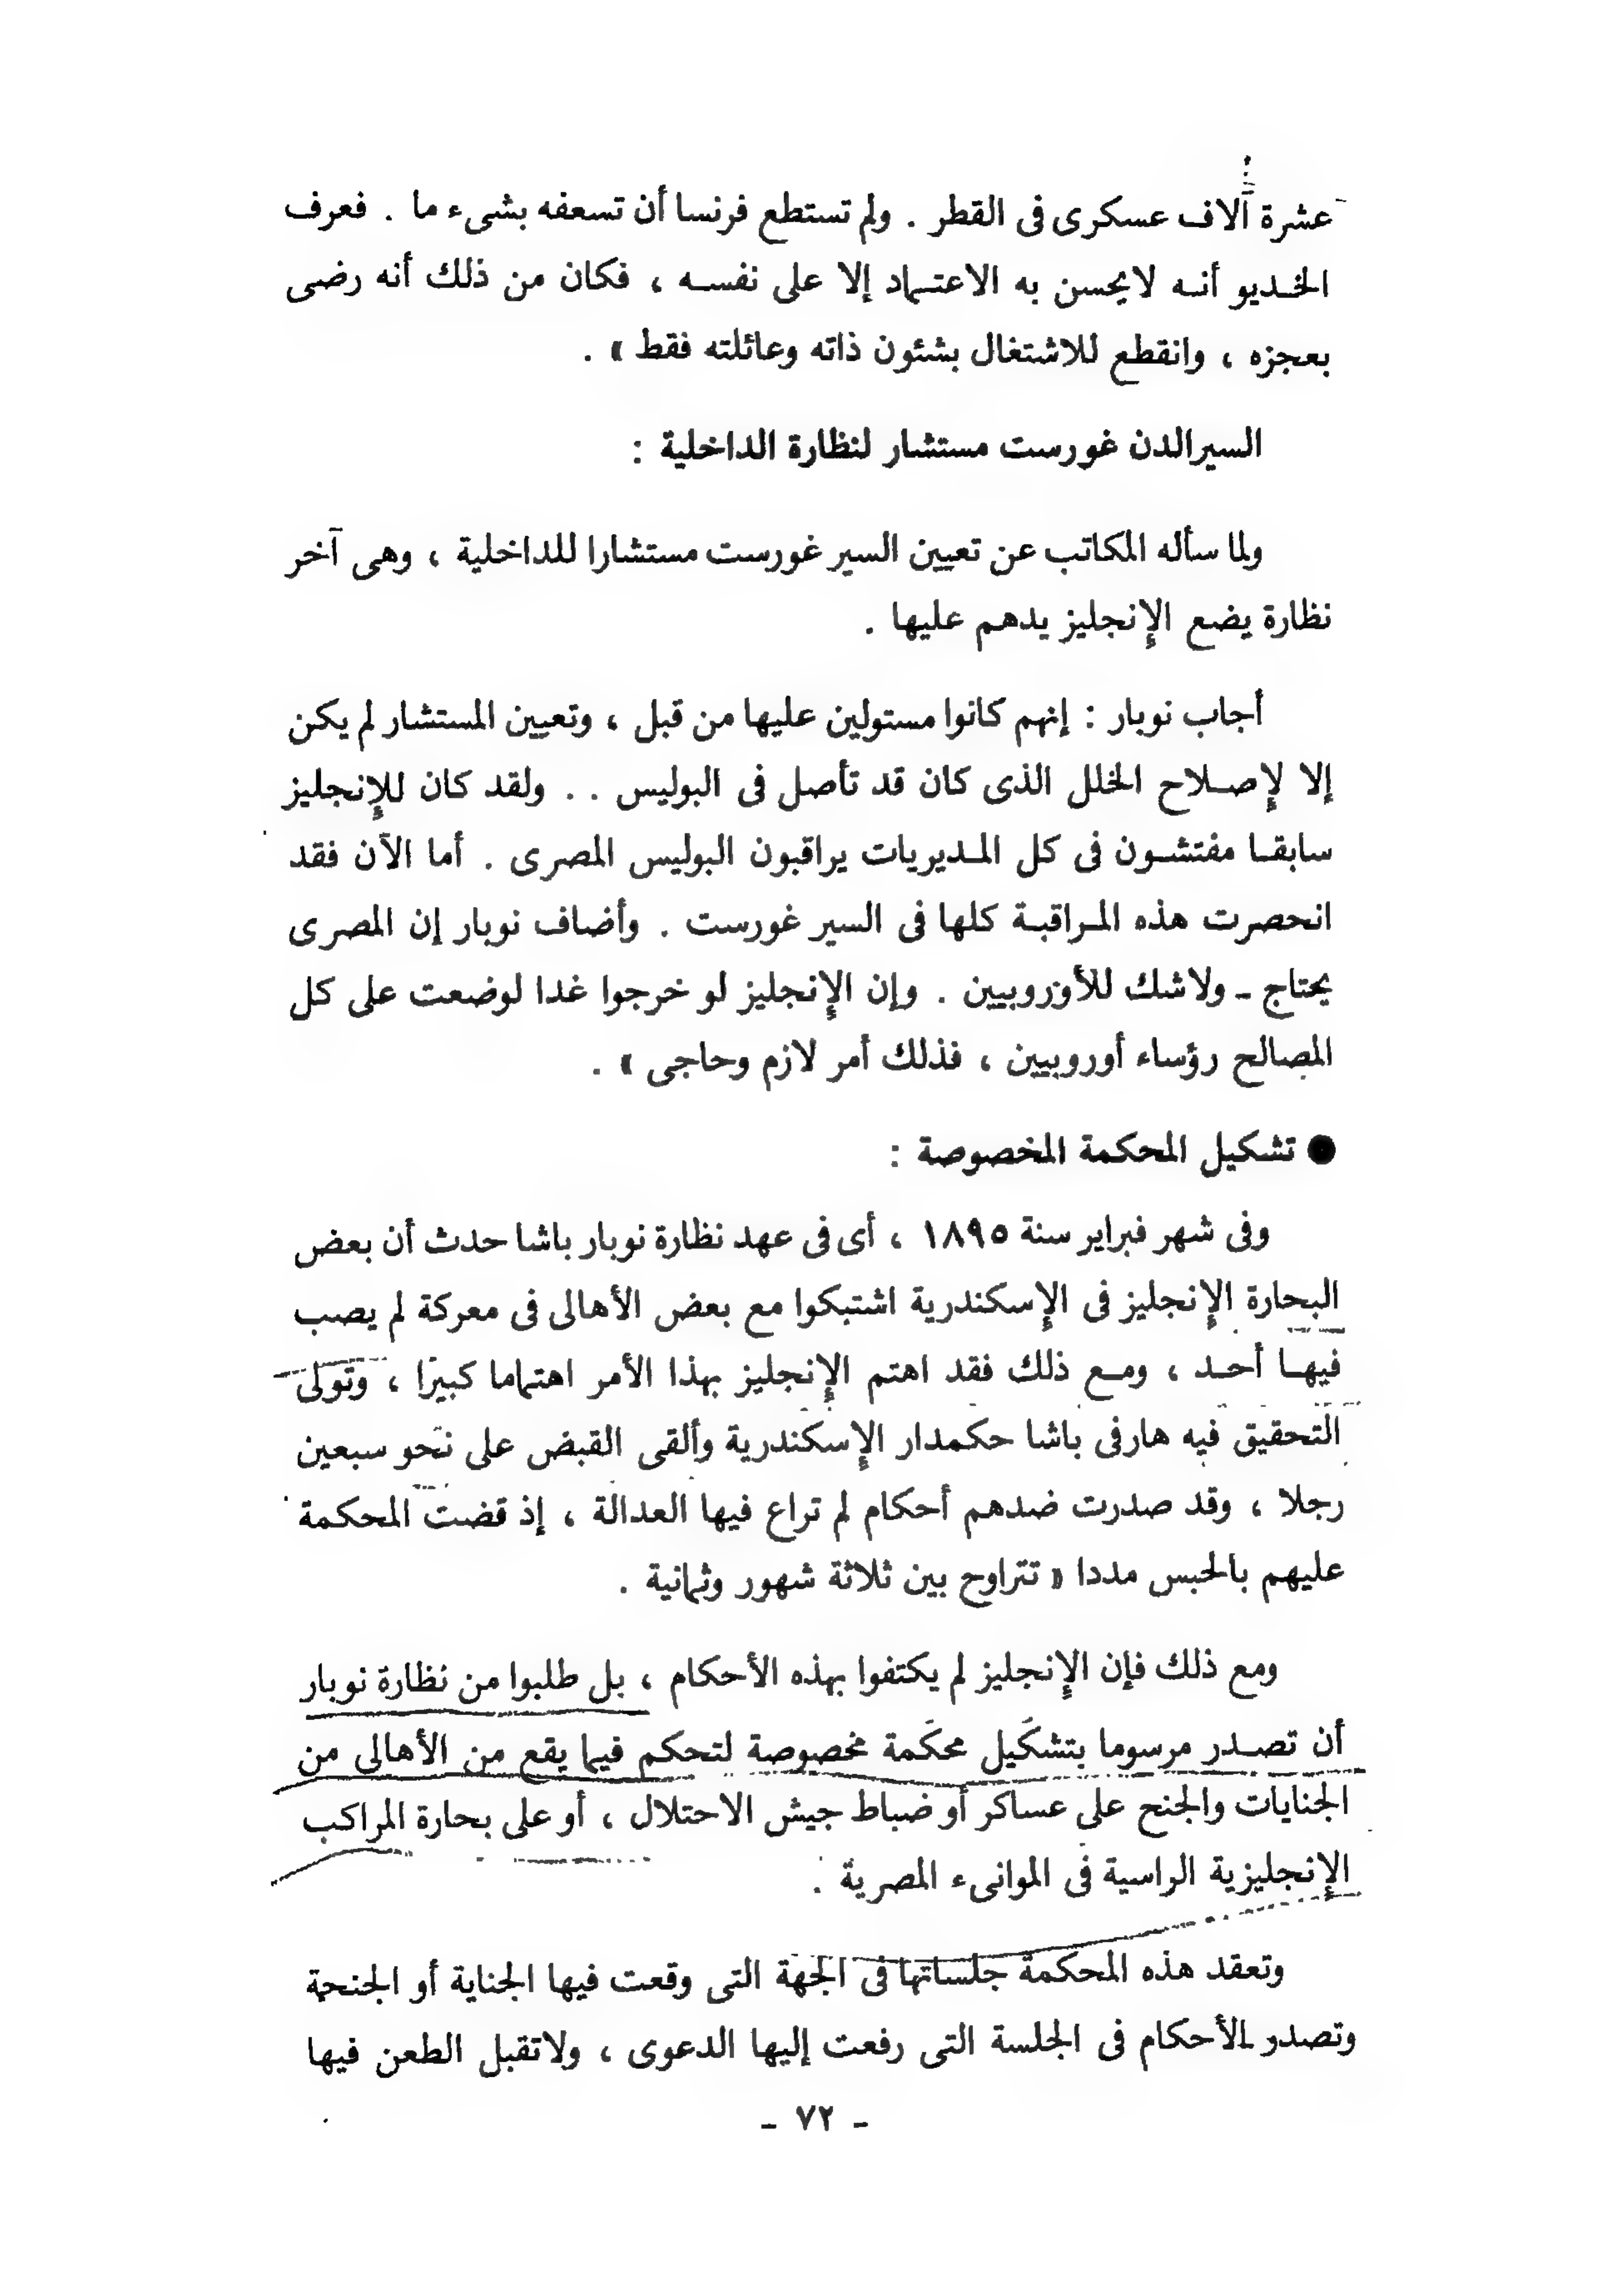 عشرة آلاف عسكرى فى القطر . ولم تستطع فرنسا أن تسعفه بشىء ما . فعرف
الخديو أنه لايحسن به الاعتماد إلا على نفسه ، فكان من ذلك أنه رضى
بعجزه ، وانقطع للاشتغال بشئون ذاته وعائلته فقط » .
السيرالدن غورست مستشار لنظارة الداخلية :
ولما سأله المكاتب عن تعيين السير غورست مستشارا للداخلية ، وهى آخر
نظارة يضع الإنجليز يدهم عليها .
أجاب نوبار : إنهم كانوا مستولين عليها من قبل ، وتعيين المستشار لم يكن
إلا لإصلاح الخلل الذى كان قد تأصل فى البوليس . . ولقد كان للإنجليز
سابقا مفتشون فى كل المديريات يراقبون البوليس المصرى . أما الآن فقد
انحصرت هذه المراقبة كلها فى السير غورست . وأضاف نوبار إن المصرى
يحتاج ـ ولاشك للأوروبيين . وإن الإنجليز لو خرجوا غدا لوضعت على كل
المصالح رؤساء أوروبيين ، فذلك أمر لازم وحاجى » .
● تشكيل المحكمة المخصوصة :
وفى شهر فبراير سنة ١٨٩٥ ، أى فى عهد نظارة نوبار باشا حدث أن بعض
البحارة الإنجليز فى الإسكندرية اشتبكوا مع بعض الأهالى فى معركة لم يصب
فيها أحد ، ومع ذلك فقد اهتم الإنجليز بهذا الأمر اهتماما كبيرا ، وتولى
التحقيق فيه هارفى باشا حكمدار الإسكندرية وألقى القبض على نحو سبعين
رجلا ، وقد صدرت ضدهم أحكام لم تراع فيها العدالة ، إذ قضت المحكمة
عليهم بالحبس مددا « تتراوح بين ثلاثة شهور وثمانية .
ومع ذلك فإن الإنجليز لم يكتفوا بهذه الأحكام ، بل طلبوا من نظارة نوبار
أن تصدر مرسوما بتشكيل محكمة مخصوصة لتحكم فيما يقع من الأهالى من
الجنايات والجنح على عساكر أو ضباط جيش الاحتلال ، أو على بحارة المراكب
الإنجليزية الراسية فى الموانىء المصرية .
وتعقد هذه المحكمة جلساتها فى الجهة التى وقعت فيها الجناية أو الجنحة
وتصدر الأحكام فى الجلسة التى رفعت إليها الدعوى ، ولاتقبل الطعن فيها
ـ ٧٢ ـ